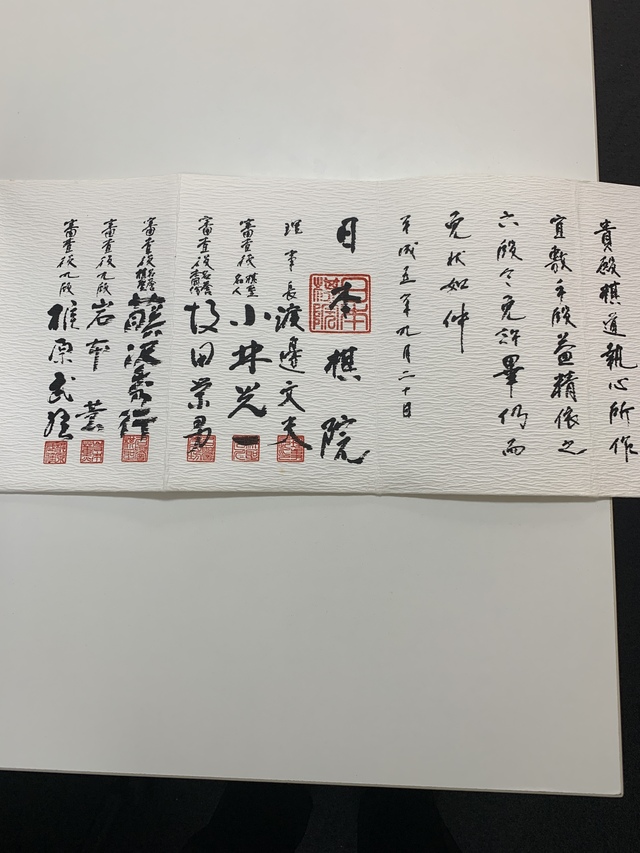 貴殿棋道執心所作
宜敷手段益精依之
六段令免許畢仍而
免状如件
平成五年九月二十日
日本棋院
理事長 渡邊文夫
審査役 棋聖 名人 小林光一
審査役 坂田栄男
審査役 名誉棋聖 藤沢秀行
審査役九段 岩本薫
審査役九段 梶原武雄